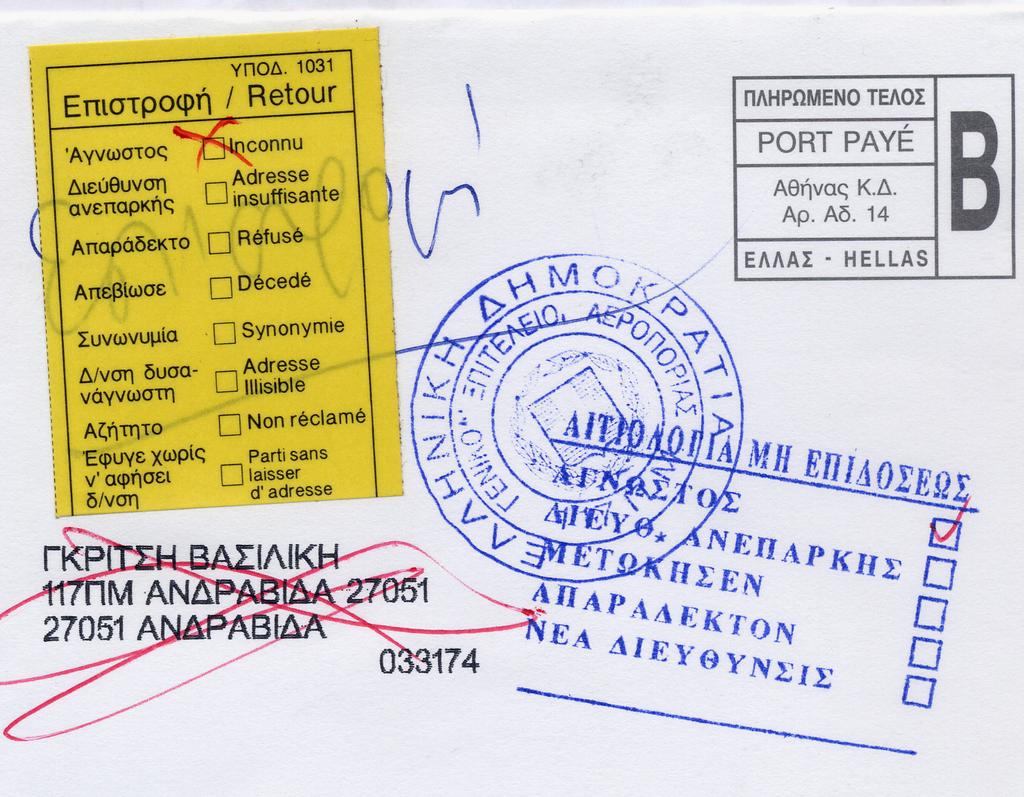 ΥΠΟΔ. 1031
Επιστροφή / Retour
'Αγνωστος Inconnu
Διεύθυνση ανεπαρκής Adresse insuffisante
Απαράδεκτο Réfusé
Απεβίωσε Décedé
Συνωνυμία Synonymie
Δ/νση δυσα-
νάγνωστη Adresse Illisible
Αζήτητο Non réclamé
Έφυγε χωρίς
ν' αφήσει
δ/νση
Parti sans
laisser
d' adresse
ΠΛΗΡΩΜΕΝΟ ΤΕΛΟΣ
PORT PAYÉ
Αθήνας Κ.Δ.
Αρ. Αδ. 14
ΕΛΛΑΣ - HELLAS
B
ΕΛΛΗΝΙΚΗ ΔΗΜΟΚΡΑΤΙΑ
ΓΕΝΙΚΟ ΕΠΙΤΕΛΕΙΟ ΑΕΡΟΠΟΡΙΑΣ
ΑΙΤΙΟΛΟΓΙΑ ΜΗ ΕΠΙΔΟΣΕΩΣ
ΑΓΝΩΣΤΟΣ
ΔΙΕΥΘ. ΑΝΕΠΑΡΚΗΣ
ΜΕΤΩΚΗΣΕΝ
ΑΠΑΡΑΔΕΚΤΟΝ
ΝΕΑ ΔΙΕΥΘΥΝΣΙΣ
ΓΚΡΙΤΣΗ ΒΑΣΙΛΙΚΗ
117ΠΜ ΑΝΔΡΑΒΙΔΑ 27051
27051 ΑΝΔΡΑΒΙΔΑ
033174